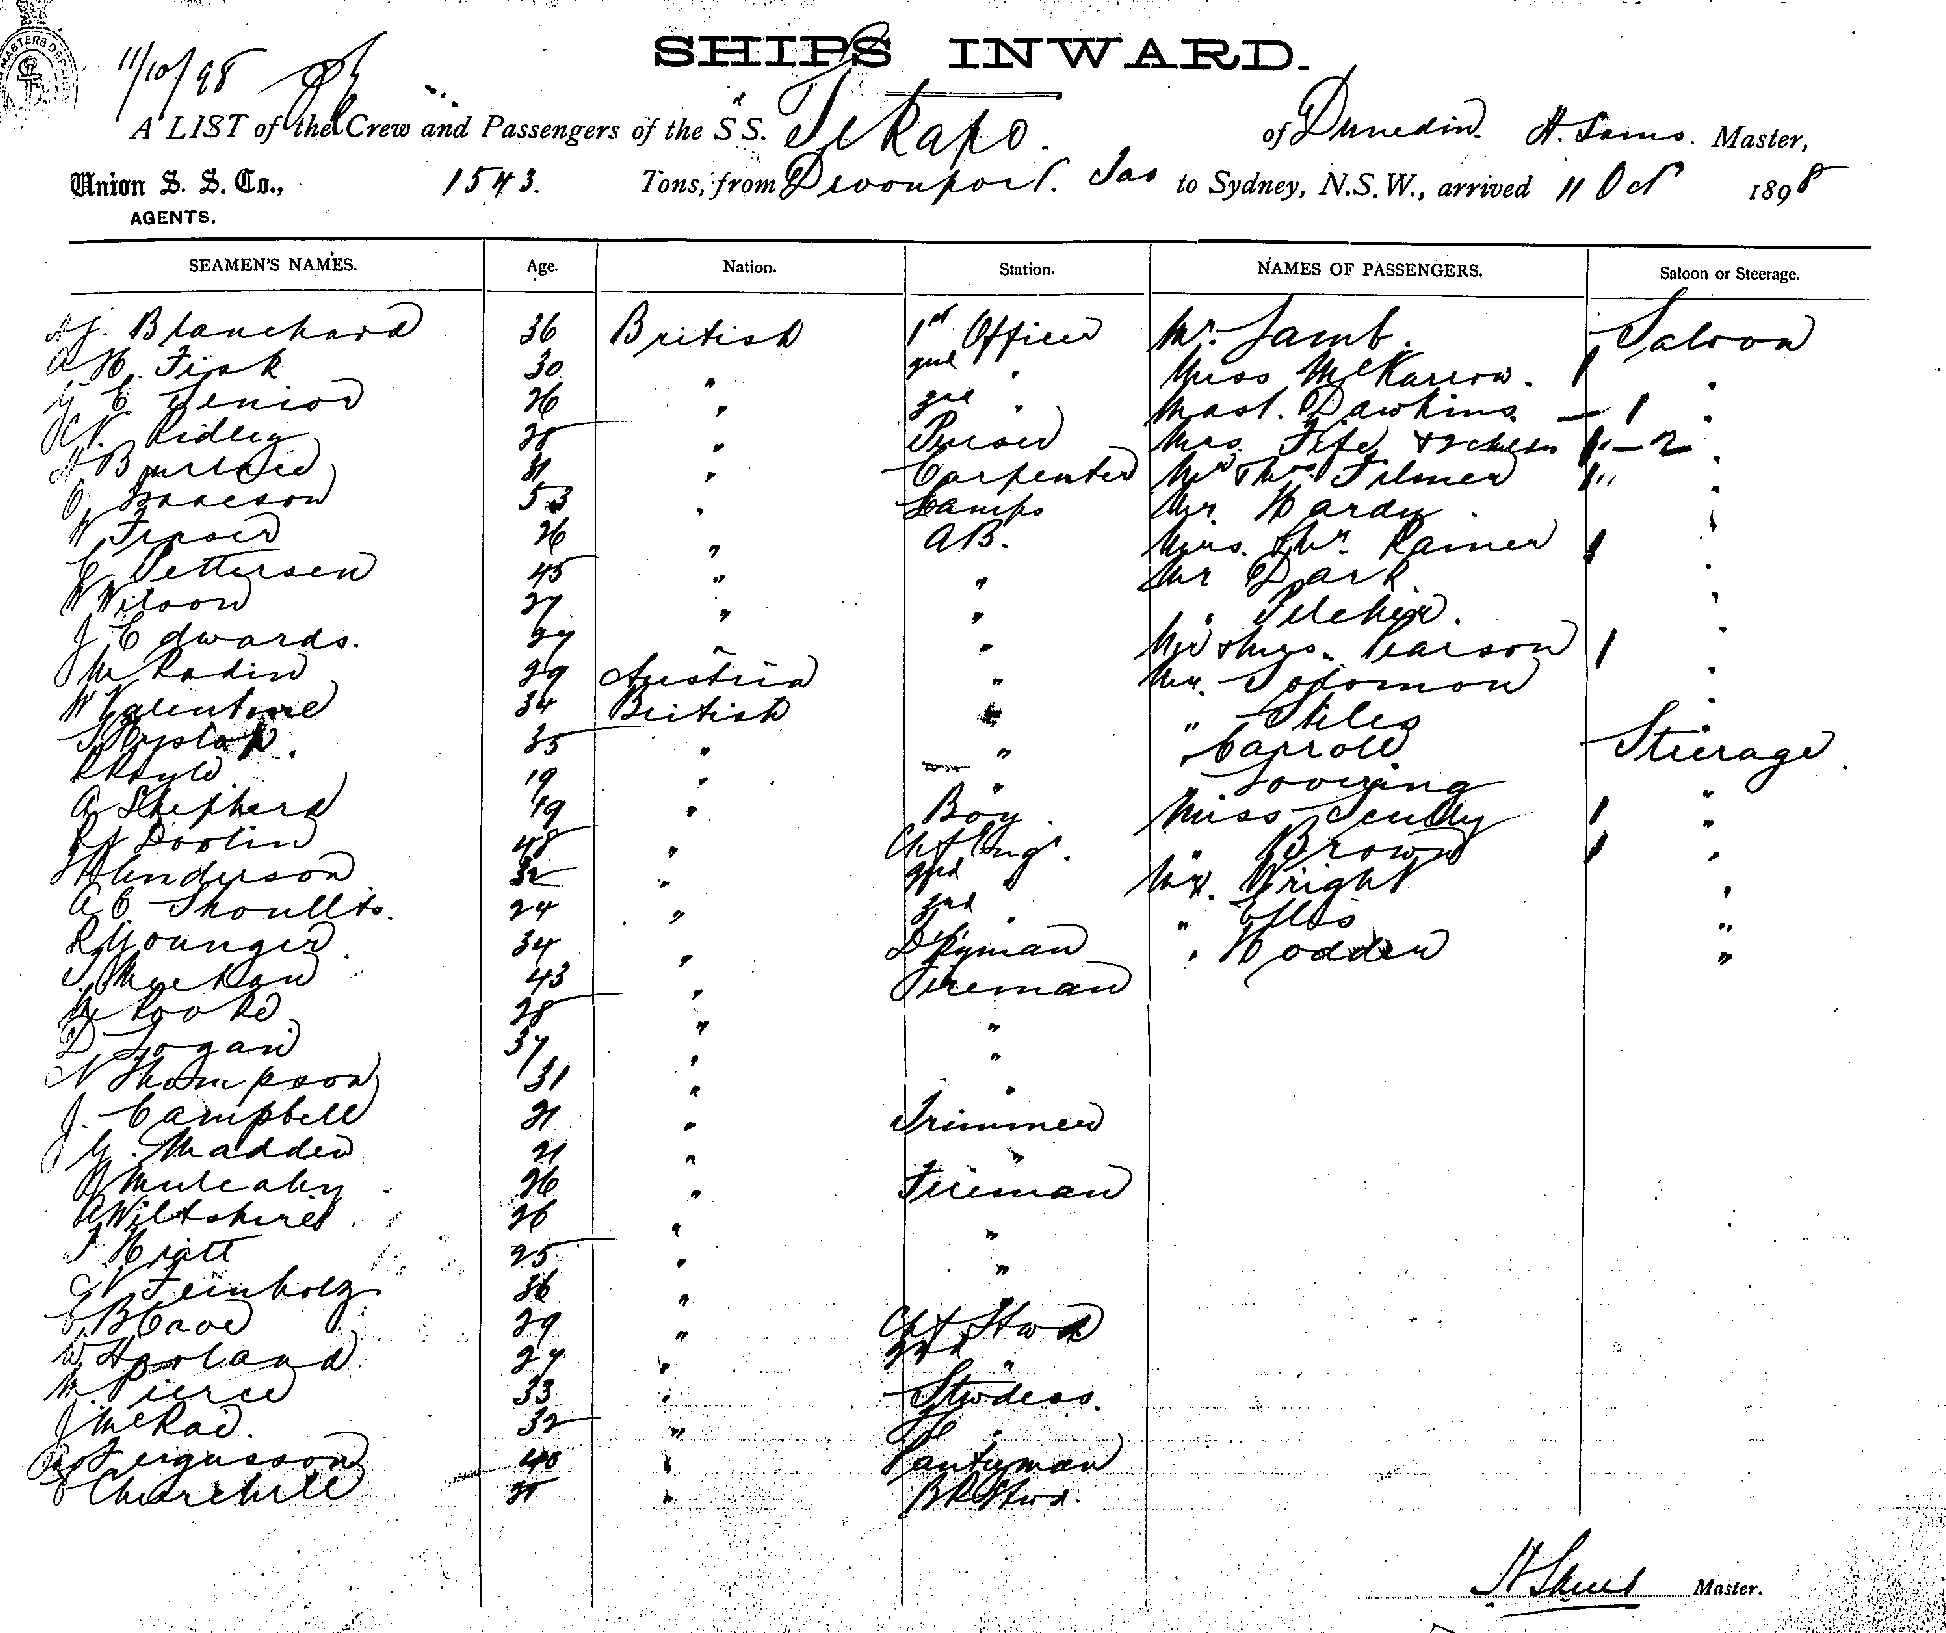 11/10/98
SHIPS INWARD.
A LIST of the Crew and Passengers of the S S. Tekapo. of Dunedin. H. Sams. Master,
Union S. S. Co., 1543. Tons, from Devonport. Tas to Sydney, N.S.W., arrived 11 Oct 1898
AGENTS.
SEAMEN'S NAMES. Age. Nation. Station. NAMES OF PASSENGERS. Saloon or Steerage.
Blanchard 36 British 1st Officer Mr. Lamb. Saloon
A H. Fisk 30 " 2nd " Miss McKarrow. 1 "
G E Senior 26 " 3rd " Mast. Dawkins — 1 "
Ridley 28 " Purser Mrs. Fife & 2 chldn 1 — 2 "
31 " Carpenter Mr & Mrs Filmer 1 "
Isaacson 53 " Lamps Mr. Hardy "
W Fraser 26 " AB. Mrs. & Mr. Ramer 1 "
C Pettersen 45 " " Mr Dark "
W Wilson 27 " " " Pilcher. "
J Edwards. 27 " Mr & Mrs. Pearson 1 "
M Radin 29 Austria " Mr. Solomon "
W Valentine 34 British " " Stiles "
Hyslop 35 " " " Carroll Steerage
19 " " " "
A Shepherd 19 " Boy. Miss 1 "
Doolin 48 " Chf Engr. " Brown 1 "
Henderson 32 " 2nd Mr. Wright "
A E Shoullts. 24 " 3rd " " Ellis "
R Younger 34 " Dkyman " Hodder "
43 " Fireman
Rooke 28 " "
D Logan 37 " "
N Thompson 31 " "
J. Campbell 21 " Trimmer
G. Madden 21 " "
Mulcahy 26 " Fireman
A Wiltshire 26 " "
Hiatt 25 " "
Feinholz 36 " "
E B Cave 29 " Chf Stwd
W Harland 27 " 2nd "
M. Pierce 33 " Stwdess.
J McRae. 32 " "
Fergusson 40 " Pantryman
E Churchill 21 " BR Stwd.
H Sams Master.